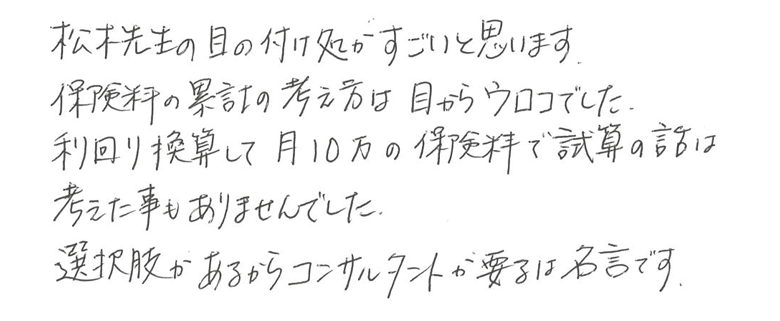 松木先生の目の付け処がすごいと思います.
保険料の累計の考え方は目からウロコでした.
利回り換算して月10万の保険料で試算の話は
考えた事もありませんでした.
選択肢があるからコンサルタントが要るは名言です.